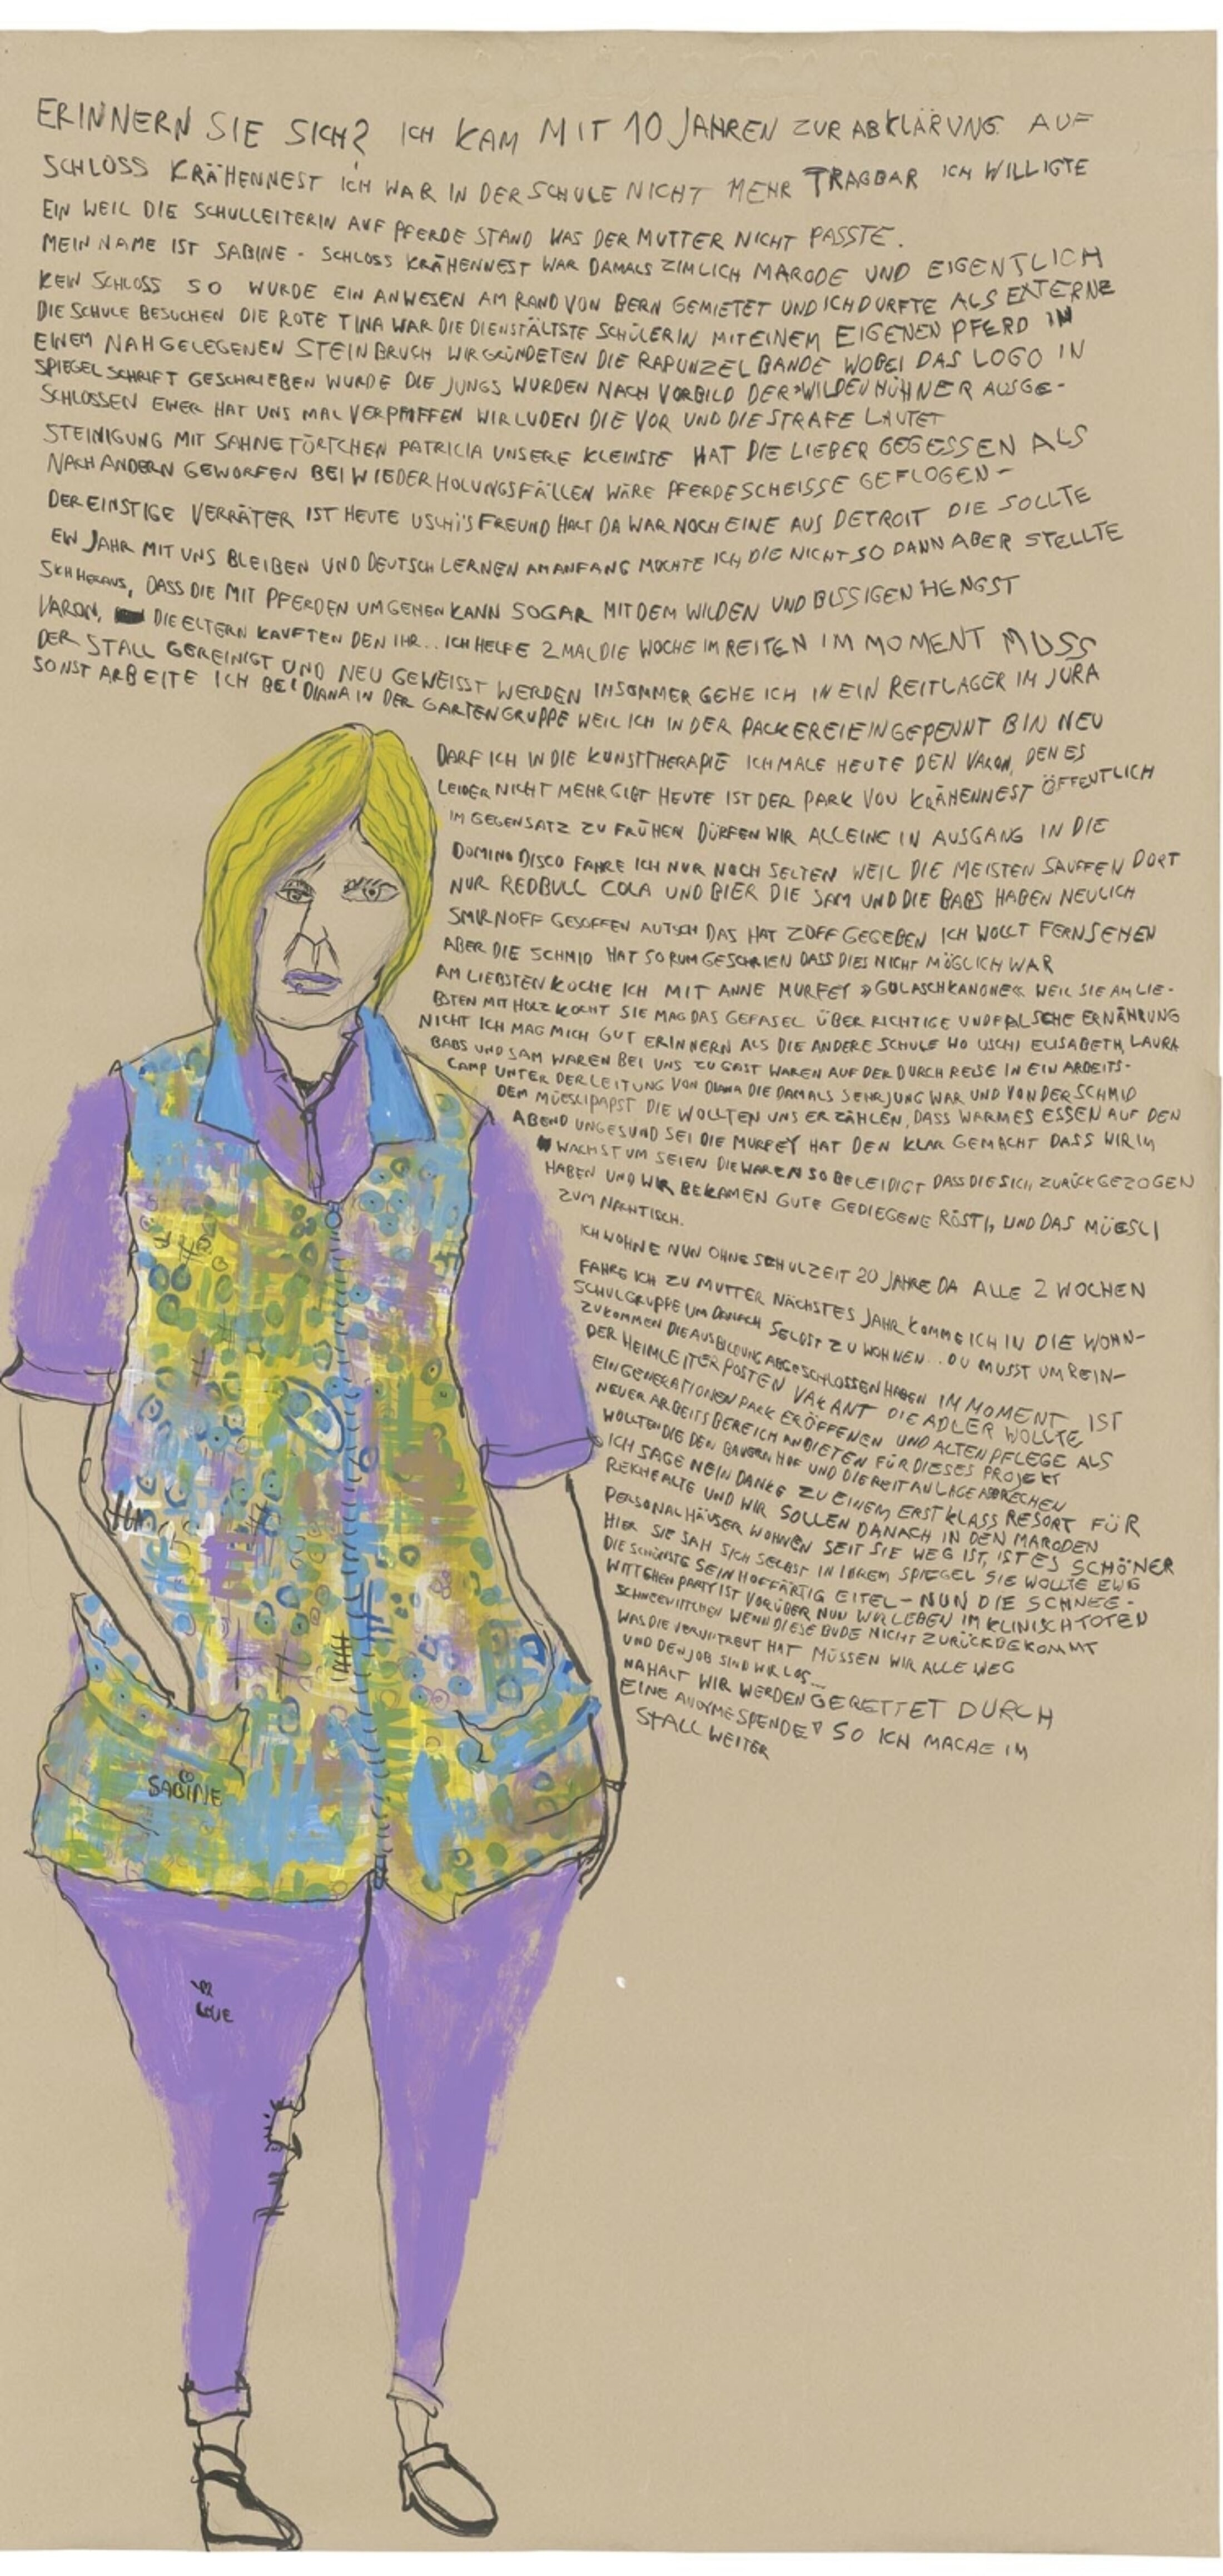 ERINNERN SIE SICH? ICH KAM MIT 10 JAHREN ZUR ABKLÄRUNG AUF
SCHLOSS KRÄHENNEST ICH WAR IN DER SCHULE NICHT MEHR TRAGBAR ICH WILLIGTE
EIN WEIL DIE SCHULLEITERIN AUF PFERDE STAND WAS DER MUTTER NICHT PASSTE.
MEIN NAME IST SABINE - SCHLOSS KRÄHENNEST WAR DAMALS ZIMLICH MARODE UND EIGENTLICH
KEIN SCHLOSS SO WURDE EIN ANWESEN AM RAND VON BERN GEMIETET UND ICH DURFTE ALS EXTERNE
DIE SCHULE BESUCHEN DIE ROTE TINA WAR DIE DIENSTÄLTSTE SCHÜLERIN MIT EINEM EIGENEN PFERD IN
EINEM NAHGELEGENEN STEINBRUCH WIR GRÜNDETEN DIE RAPUNZEL BANDE WOBEI DAS LOGO IN
SPIEGELSCHRIFT GESCHRIEBEN WURDE DIE JUNGS WURDEN NACH VORBILD DER »WILDEN HÜHNER AUSGE-
SCHLOSSEN EINER HAT UNS MAL VERPFIFFEN WIR LUDEN DIE VOR UND DIE STRAFE LAUTET
STEINIGUNG MIT SAHNETÖRTCHEN PATRICIA UNSERE KLEINSTE HAT DIE LIEBER GEGESSEN ALS
NACH ANDERN GEWORFEN BEI WIEDERHOLUNGSFÄLLEN WÄRE PFERDESCHEISSE GEFLOGEN -
DER EINSTIGE VERRÄTER IST HEUTE USCHI'S FREUND HALT DA WAR NOCH EINE AUS DETROIT DIE SOLLTE
EIN JAHR MIT UNS BLEIBEN UND DEUTSCH LERNEN AM ANFANG MOCHTE ICH DIE NICHT SO DANN ABER STELLTE
SICH HERAUS, DASS DIE MIT PFERDEN UMGEHEN KANN SOGAR MIT DEM WILDEN UND BISSIGEN HENGST
VARON, DIE ELTERN KAUFTEN DEN IHR... ICH HELFE 2 MAL DIE WOCHE IM REITEN IM MOMENT MUSS
DER STALL GEREINIGT UND NEU GEWEISST WERDEN IM SOMMER GEHE ICH IN EIN REITLAGER IM JURA
SONST ARBEITE ICH BEI DIANA IN DER GARTENGRUPPE WEIL ICH IN DER PACKEREI EINGEPENNT BIN NEU
DARF ICH IN DIE KUNSTTHERAPIE ICH MALE HEUTE DEN VARON, DEN ES
LEIDER NICHT MEHR GIBT HEUTE IST DER PARK VON KRÄHENNEST ÖFFENTLICH
IM GEGENSATZ ZU FRÜHER DÜRFEN WIR ALLEINE IN AUSGANG IN DIE
DOMINO DISCO FAHRE ICH NUR NOCH SELTEN WEIL DIE MEISTEN SAUFFEN DORT
NUR REDBULL COLA UND BIER DIE SAM UND DIE BABS HABEN NEULICH
SMIRNOFF GESOFFEN AUTSCH DAS HAT ZOFF GEGEBEN ICH WOLLT FERNSEHEN
ABER DIE SCHMID HAT SO RUMGESCHRIEN DASS DIES NICHT MÖGLICH WAR
AM LIEBSTEN KOCHE ICH MIT ANNE MURFEY »GULASCHKANONE« WEIL SIE AM LIE-
BSTEN MIT HOLZ KOCHT SIE MAG DAS GEFASEL ÜBER RICHTIGE UND FALSCHE ERNÄHRUNG
NICHT ICH MAG MICH GUT ERINNERN ALS DIE ANDERE SCHULE WO USCHI ELISABETH, LAURA
BABS UND SAM WAREN BEI UNS ZU GAST WAREN AUF DER DURCHREISE IN EIN ARBEITS-
CAMP UNTER DER LEITUNG VON DIANA DIE DAMALS SEHR JUNG WAR UND VON DER SCHMID
DEM MÜESLIPAPST DIE WOLLTEN UNS ERZÄHLEN, DASS WARMES ESSEN AUF DEN
ABEND UNGESUND SEI DIE MURFEY HAT DEN KLAR GEMACHT DASS WIR IM
WACHSTUM SEIEN DIE WAREN SO BELEIDIGT DASS DIE SICH ZURÜCKGEZOGEN
HABEN UND WIR BEKAMEN GUTE GEDIEGENE RÖSTI, UND DAS MÜESLI
ZUM NACHTISCH.
ICH WOHNE NUN OHNE SCHULZEIT 20 JAHRE DA ALLE 2 WOCHEN
FAHRE ICH ZU MUTTER NÄCHSTES JAHR KOMME ICH IN DIE WOHN-
SCHULGRUPPE UM DANACH SELBST ZU WOHNEN... DU MUSST UM REIN-
ZUKOMMEN DIE AUSBILDUNG ABGESCHLOSSEN HABEN IM MOMENT IST
DER HEIMLEITERPOSTEN VAKANT DIE ADLER WOLLTE
EIN GENERATIONENPARK ERÖFFENEN UND ALTENPFLEGE ALS
NEUER ARBEITSBEREICH ANBIETEN FÜR DIESES PROJEKT
WOLLTEN DIE DEN BAUERNHOF UND DIE REITANLAGE ABBRECHEN
ICH SAGE NEIN DANKE ZU EINEM ERSTKLASS RESORT FÜR
REICHE ALTE UND WIR SOLLEN DANACH IN DEN MARODEN
PERSONALHÄUSER WOHNEN SEIT SIE WEG IST, IST ES SCHÖNER
HIER SIE SAH SICH SELBST IN IHREM SPIEGEL SIE WOLLTE EWIG
DIE SCHÖNSTE SEIN HOFFÄRTIG EITEL - NUN DIE SCHNEE-
WITTCHEN PARTY IST VORÜBER NUN WIR LEBEN IM KLINISCH TOTEN
SCHNEEWITTCHEN WENN DIESE BUDE NICHT ZURÜCKBEKOMMT
WAS DIE VERUNTREUT HAT MÜSSEN WIR ALLE WEG
UND DEN JOB SIND WIR LOS...
NAHALT WIR WERDEN GERETTET DURCH
EINE ANONYME SPENDE! SO ICH MACHE IM
STALL WEITER
SABINE
LOVE